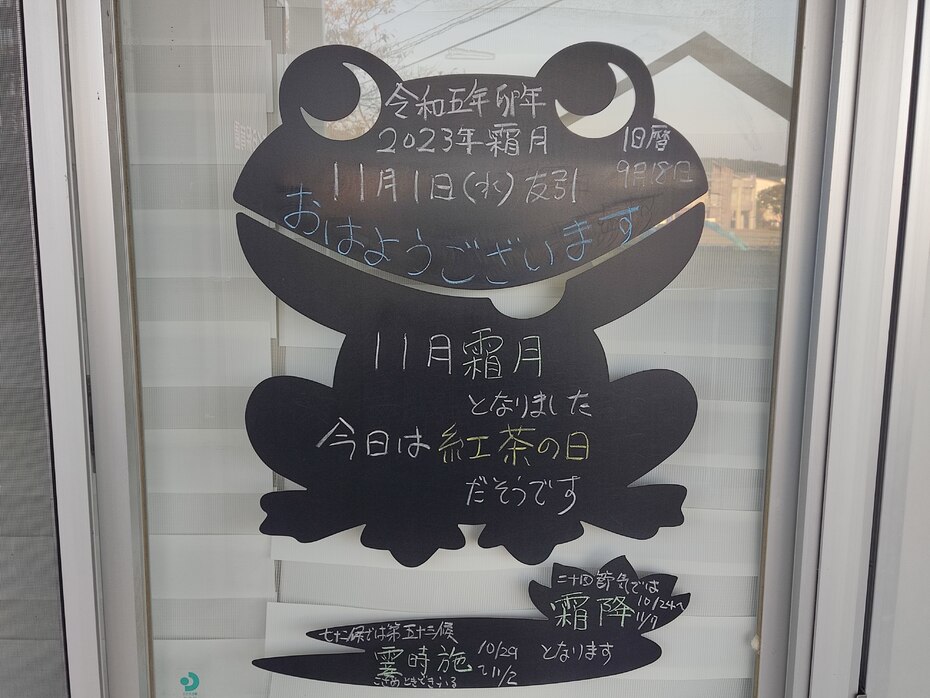 令和五年卯年
2023年霜月
旧暦
9月18日
11月1日(水)友引
おはようございます
11月霜月
となりました
今日は紅茶の日
だそうです
二十四節気では
霜降 10/24〜11/7
となります
七十二候では第五十三候
霎時施 10/29〜11/2